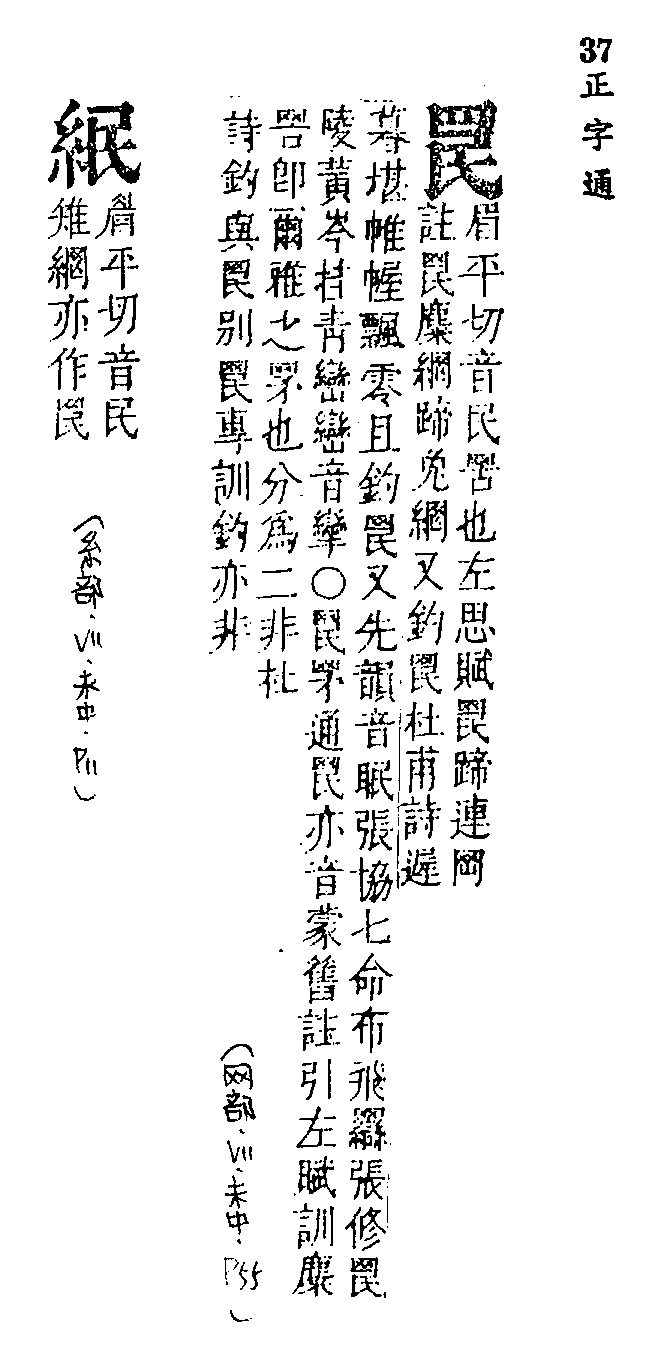 37正字通
罠
眉平切音民罟也左思賦罠蹄連岡
註罠麋網蹄兔網又釣罠杜甫詩遲
暮堪帷幄飄零且釣罠又先韻音眠張協七命布飛羉張修罠
陵黃岑挂青巒巒音攣〇罠罞通罠亦音蒙舊註引左賦訓麋
罟卽爾雅之罞也分爲二非杜
詩釣與罠別罠專訓釣亦非
(网部·VII·未中·P55)
眉平切音民
雉網亦作罠
(糸部·VII·未中·P11)